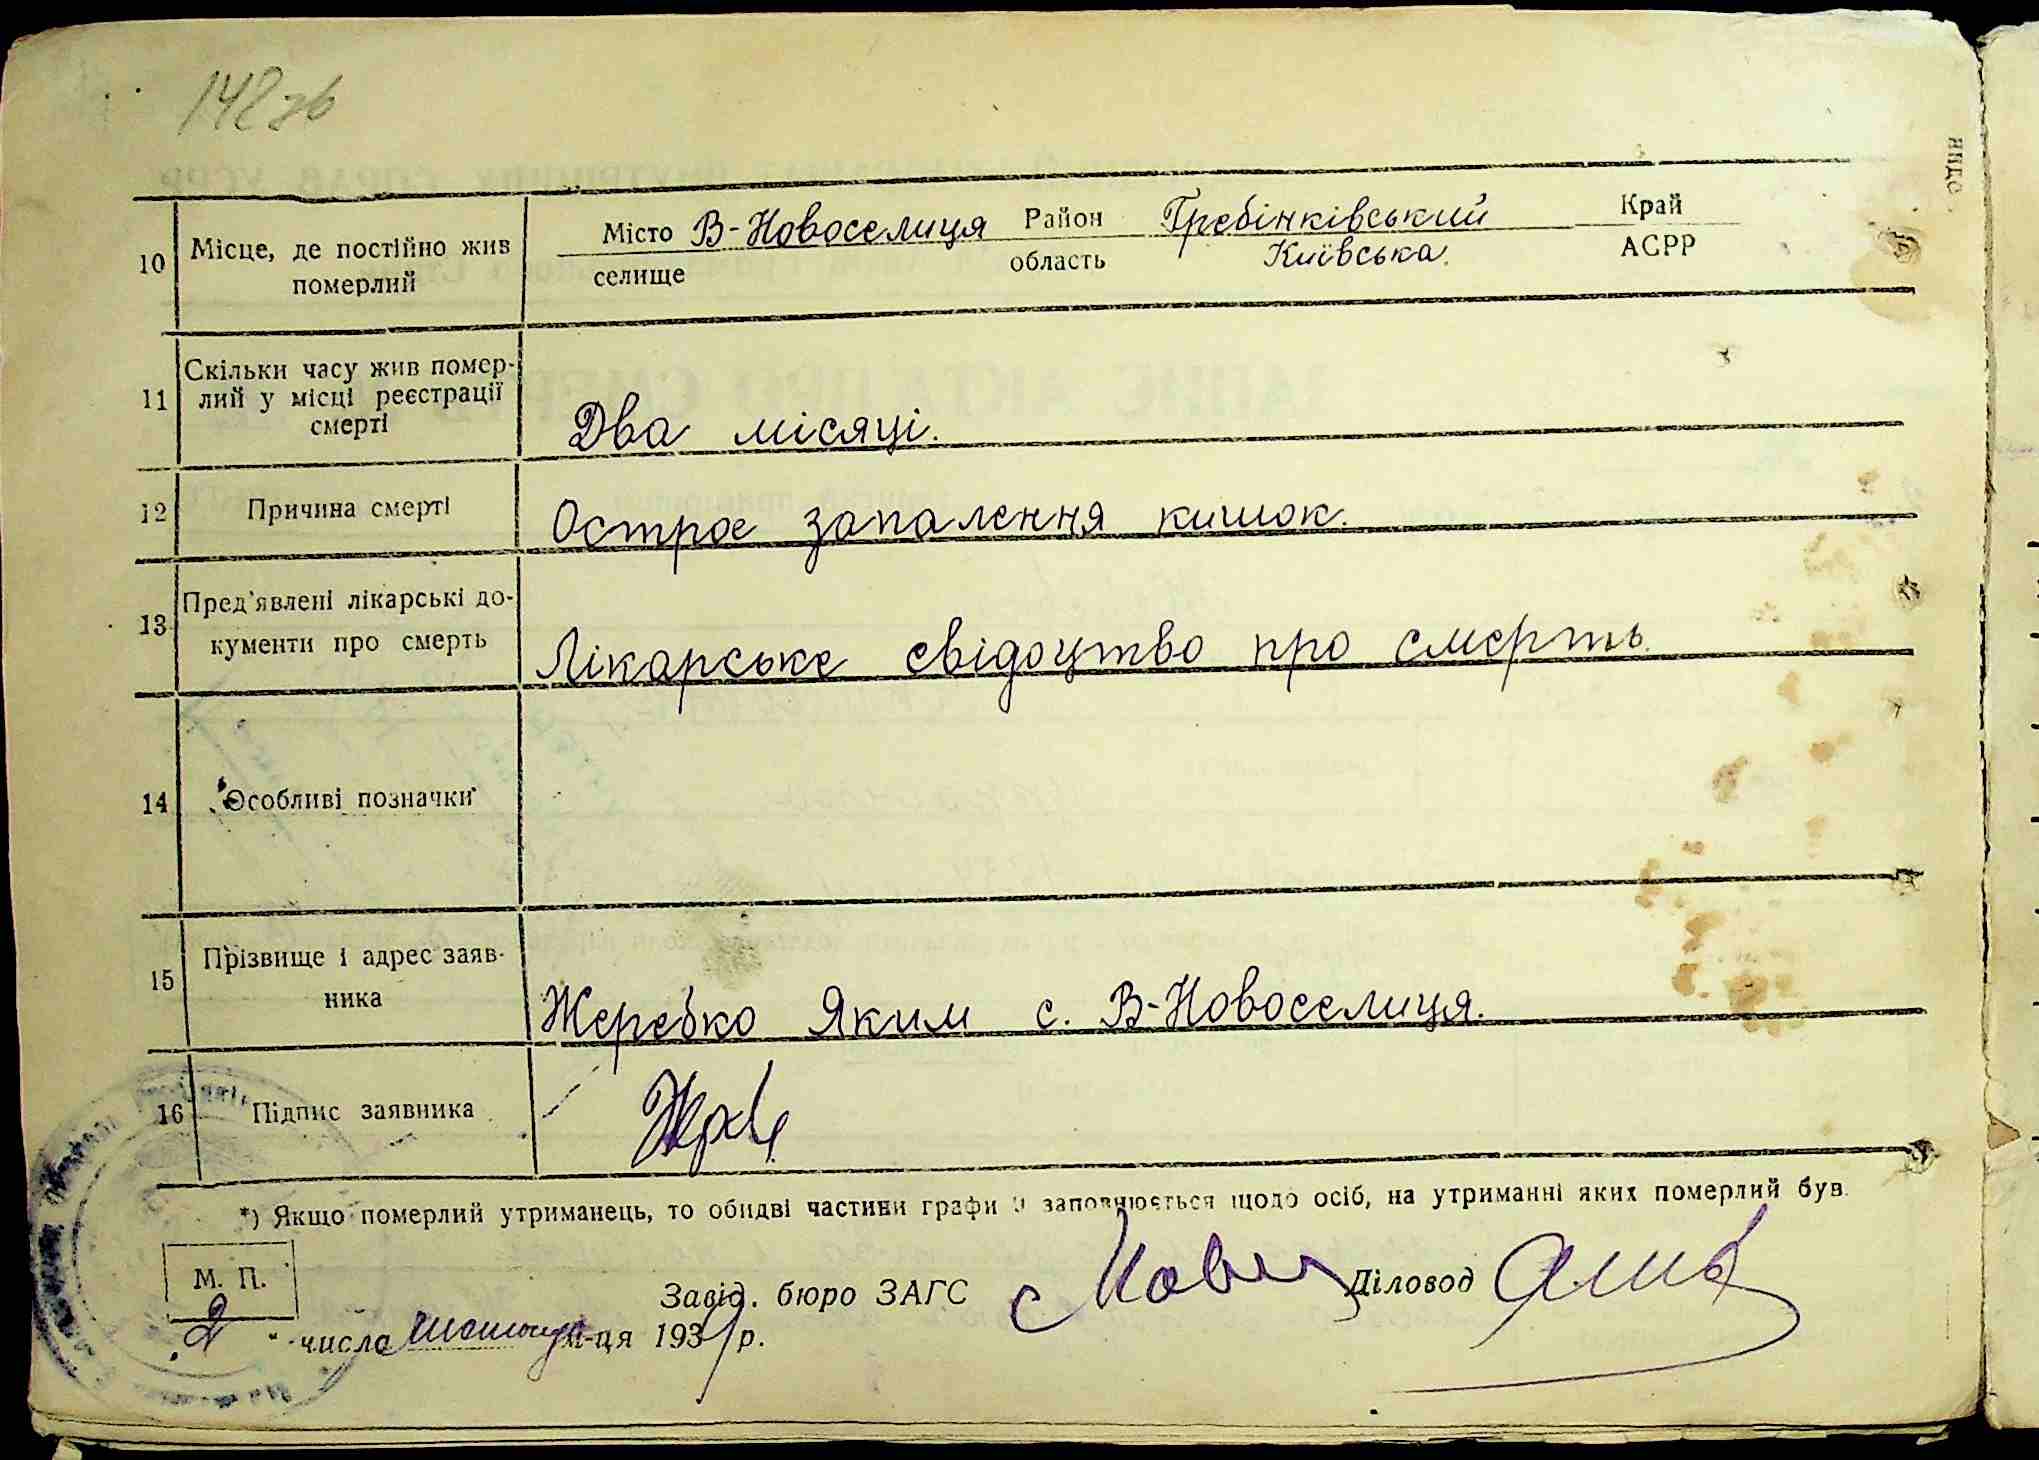 142 зв
Місто В-Новоселиця Район Гребінківський Край
10 Місце, де постійно жив
селище область Київська. АСРР
померлий
Скільки часу жив помер-
11 лий у місці реєстрації
смерті
Два місяці.
12 Причина смерті Острое запалення кишок.
Пред'явлені лікарські до-
13 кументи про смерть
Лікарське свідоцтво про смерть.
14 Особливі позначки
15 Прізвище і адрес заяв-
ника
Жеребко Яким с. В-Новоселиця.
16 Підпис заявника
*) Якщо померлий утриманець, то обидві частини графи 9 заповнюється щодо осіб, на утриманні яких померлий був.
М. П.
Завід. бюро ЗАГС Діловод
"2" числа м-ця 193 р.